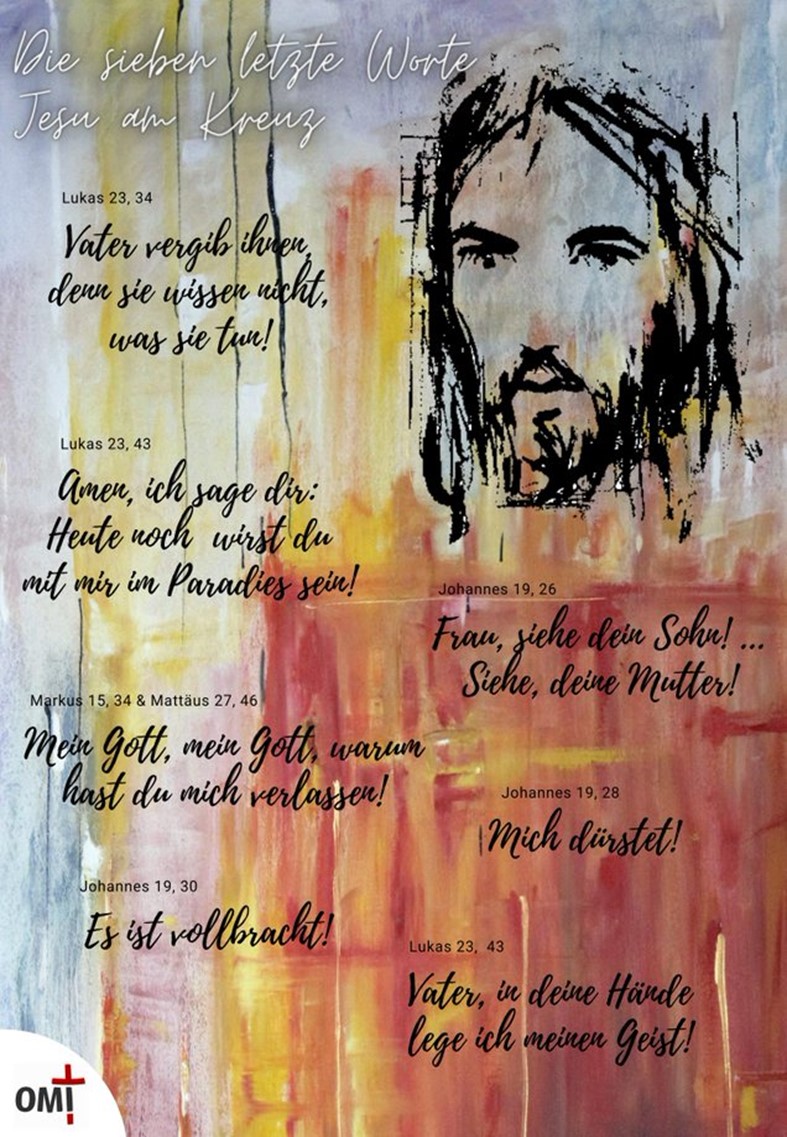 Die sieben letzte Worte
Jesu am Kreuz
Lukas 23, 34
Vater vergib ihnen,
denn sie wissen nicht,
was sie tun!
Lukas 23, 43
Amen, ich sage dir:
Heute noch wirst du
mit mir im Paradies sein!
Johannes 19, 26
Frau, siehe dein Sohn! ...
Siehe, deine Mutter!
Markus 15, 34 & Mattäus 27, 46
Mein Gott, mein Gott, warum
hast du mich verlassen!
Johannes 19, 28
Mich dürstet!
Johannes 19, 30
Es ist vollbracht!
Lukas 23, 43
Vater, in deine Hände
lege ich meinen Geist!
OMI